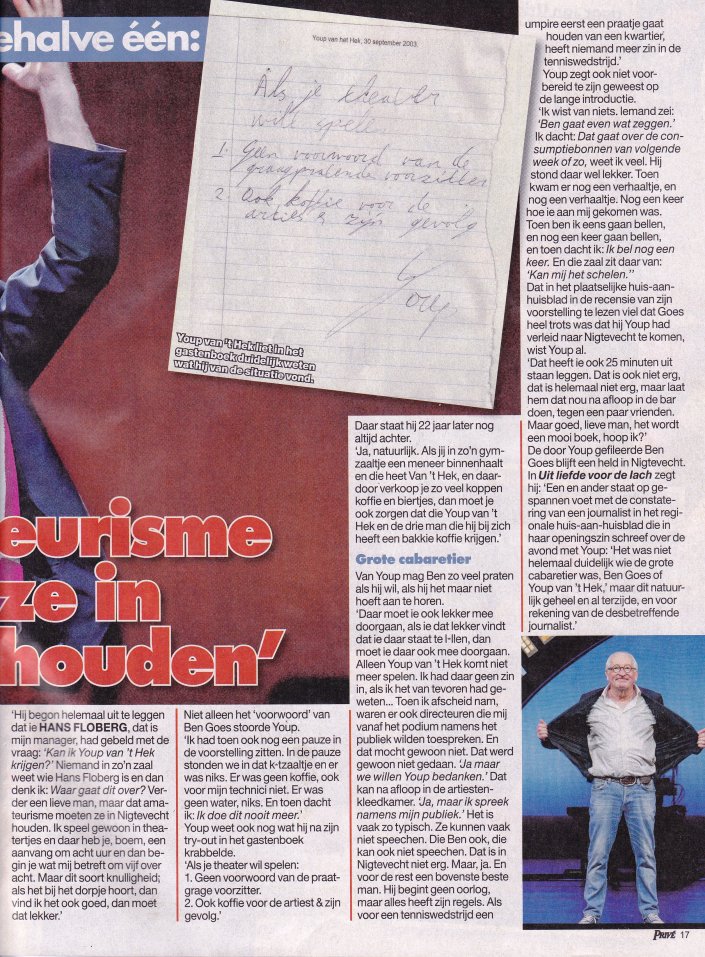 ehalve één:
Youp van het Hek, 30 september 2003.
Als je theater
wilt spelen
1. Geen voorwoord van de
graagpratende voorzitter
2. Ook koffie voor de
artiest & zijn gevolg
Youp
Youp van 't Hek liet in het
gastenboek duidelijk weten
wat hij van de situatie vond.
eurisme
ze in
houden'
'Hij begon helemaal uit te leggen
dat ie HANS FLOBERG, dat is
mijn manager, had gebeld met de
vraag: 'Kan ik Youp van 't Hek
krijgen?' Niemand in zo'n zaal
weet wie Hans Floberg is en dan
denk ik: Waar gaat dit over? Ver-
der een lieve man, maar dat ama-
teurisme moeten ze in Nigtevecht
houden. Ik speel gewoon in thea-
tertjes en daar heb je, boem, een
aanvang om acht uur en dan be-
gin je wat mij betreft om vijf over
acht. Maar dit soort knulligheid;
als het bij het dorpje hoort, dan
vind ik het ook goed, dan moet
dat lekker.'
Niet alleen het 'voorwoord' van
Ben Goes stoorde Youp.
'Ik had toen ook nog een pauze in
de voorstelling zitten. In de pauze
stonden we in dat k-tzaaltje en er
was niks. Er was geen koffie, ook
voor mijn technici niet. Er was
geen water, niks. En toen dacht
ik: Ik doe dit nooit meer.'
Youp weet ook nog wat hij na zijn
try-out in het gastenboek
krabbelde.
'Als je theater wil spelen:
1. Geen voorwoord van de praat-
grage voorzitter.
2. Ook koffie voor de artiest & zijn
gevolg.'
Daar staat hij 22 jaar later nog
altijd achter.
'Ja, natuurlijk. Als jij in zo'n gym-
zaaltje een meneer binnenhaalt
en die heet Van 't Hek, en daar-
door verkoop je zo veel koppen
koffie en biertjes, dan moet je
ook zorgen dat die Youp van 't
Hek en de drie man die hij bij zich
heeft een bakkie koffie krijgen.'
Grote cabaretier
Van Youp mag Ben zo veel praten
als hij wil, als hij het maar niet
hoeft aan te horen.
'Daar moet ie ook lekker mee
doorgaan, als ie dat lekker vindt
dat ie daar staat te l-llen, dan
moet ie daar ook mee doorgaan.
Alleen Youp van 't Hek komt niet
meer spelen. Ik had daar geen zin
in, als ik het van tevoren had ge-
weten... Toen ik afscheid nam,
waren er ook directeuren die mij
vanaf het podium namens het
publiek wilden toespreken. En
dat mocht gewoon niet. Dat werd
gewoon niet gedaan. 'Ja maar
we willen Youp bedanken.' Dat
kan na afloop in de artiesten-
kleedkamer. 'Ja, maar ik spreek
namens mijn publiek.' Het is
vaak zo typisch. Ze kunnen vaak
niet speechen. Die Ben ook, die
kan ook niet speechen. Dat is in
Nigtevecht niet erg. Maar, ja. En
voor de rest een bovenste beste
man. Hij begint geen oorlog,
maar alles heeft zijn regels. Als
voor een tenniswedstrijd een
umpire eerst een praatje gaat
houden van een kwartier,
heeft niemand meer zin in de
tenniswedstrijd.'
Youp zegt ook niet voor-
bereid te zijn geweest op
de lange introductie.
'Ik wist van niets. Iemand zei:
'Ben gaat even wat zeggen.'
Ik dacht: Dat gaat over de con-
sumptiebonnen van volgende
week of zo, weet ik veel. Hij
stond daar wel lekker. Toen
kwam er nog een verhaaltje, en
nog een verhaaltje. Nog een keer
hoe ie aan mij gekomen was.
Toen ben ik eens gaan bellen,
en nog een keer gaan bellen,
en toen dacht ik: Ik bel nog een
keer. En die zaal zit daar van:
'Kan mij het schelen.''
Dat in het plaatselijke huis-aan-
huisblad in de recensie van zijn
voorstelling te lezen viel dat Goes
heel trots was dat hij Youp had
verleid naar Nigtevecht te komen,
wist Youp al.
'Dat heeft ie ook 25 minuten uit
staan leggen. Dat is ook niet erg,
dat is helemaal niet erg, maar laat
hem dat nou na afloop in de bar
doen, tegen een paar vrienden.
Maar goed, lieve man, het wordt
een mooi boek, hoop ik?'
De door Youp gefileerde Ben
Goes blijft een held in Nigtevecht.
In Uit liefde voor de lach zegt
hij: 'Een en ander staat op ge-
spannen voet met de constate-
ring van een journalist in het regi-
onale huis-aan-huisblad die in
haar openingszin schreef over de
avond met Youp: 'Het was niet
helemaal duidelijk wie de grote
cabaretier was, Ben Goes of
Youp van 't Hek,' maar dit natuur-
lijk geheel en al terzijde, en voor
rekening van de desbetreffende
journalist.'
PRIVÉ 17